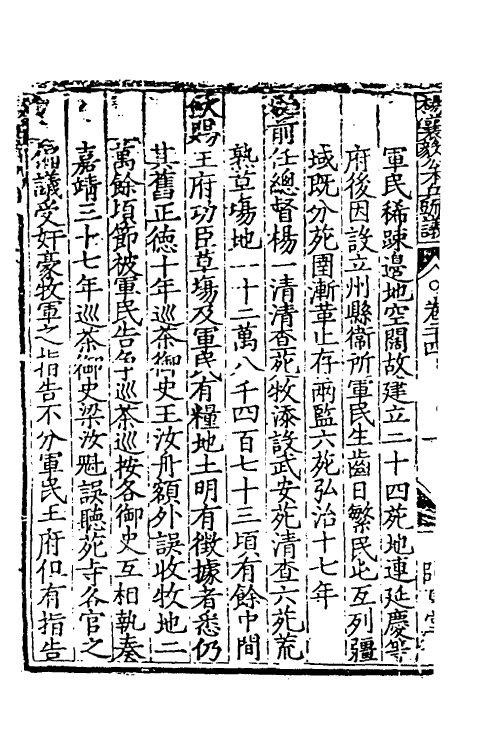 軍民稀踈邊地空闊故建立二十四苑地連延慶等
府後因設立州縣衞所軍民生齒日繁民屯互列疆
域旣分苑圉漸革止存兩監六苑弘治十七年
前任總督楊一清清查苑牧添設武安苑清查六苑荒
熟草塲地一十二萬八千四百七十三頃有餘中間
欽賜王府功臣草塲及軍民有糧地土明有徵據者悉仍
其舊正德十年巡茶御史王汝舟額外誤收牧地二
萬餘頃節被軍民告爭巡茶巡按各御史互相執奏
嘉靖三十七年巡茶御史梁汝魁誤聽苑寺各官之
議受奸豪牧軍之指告不分軍民王府但有指告
卷二十四